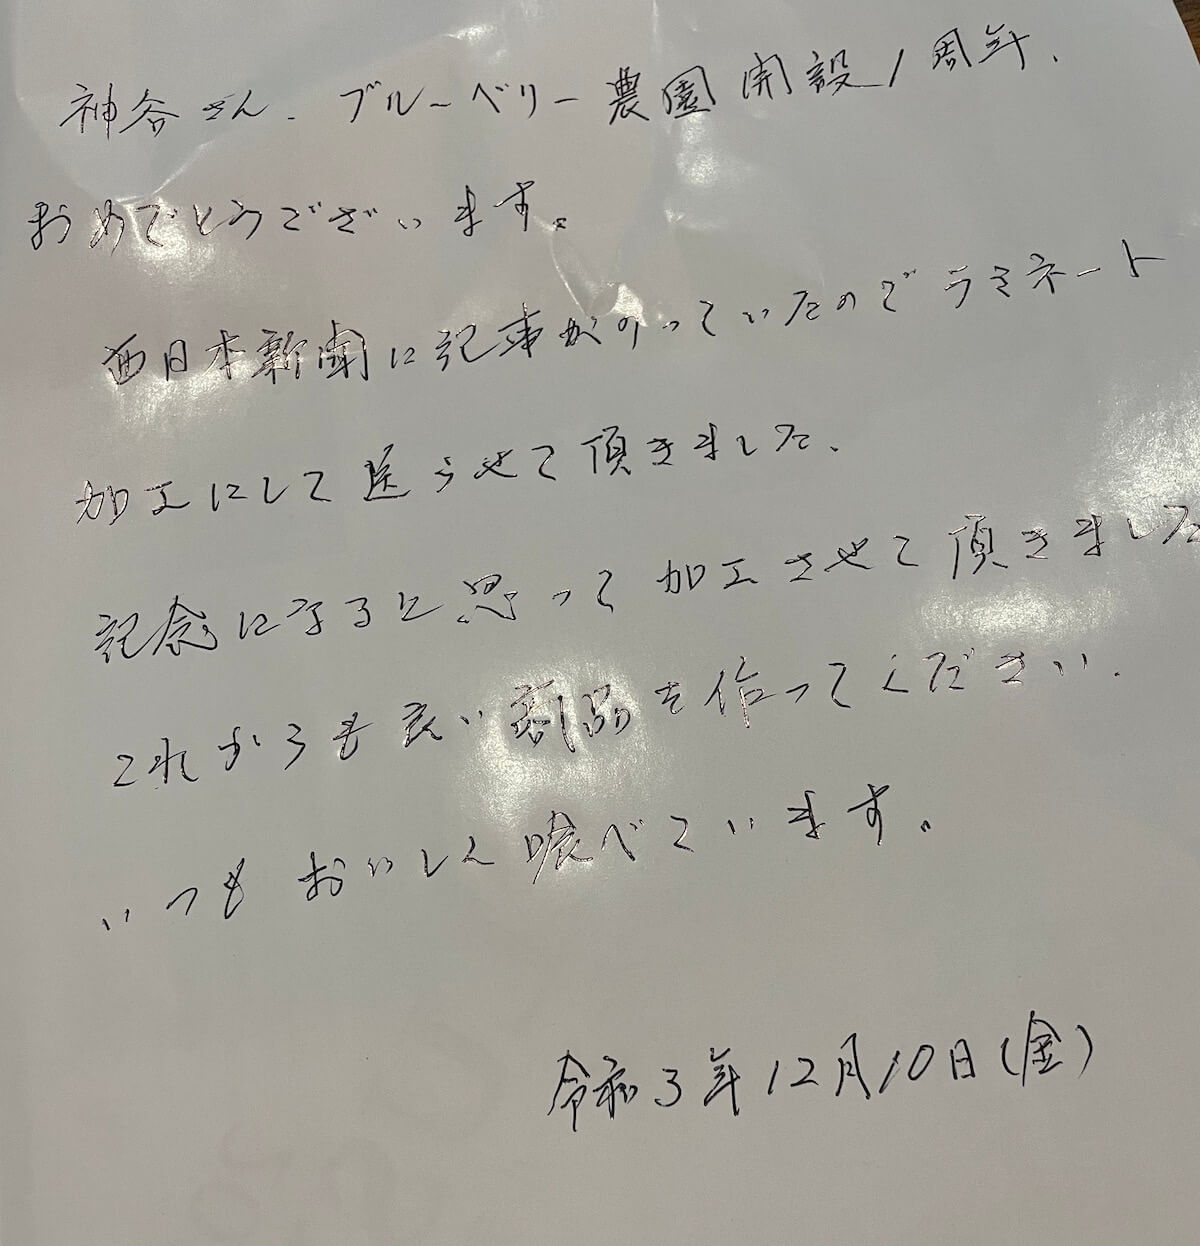 神谷さん、ブルーベリー農園開設1周年、
おめでとうございます。
西日本新聞に記事がのっていたのでラミネート
加工にして送らせて頂きました、
記念になると思って加工させて頂きました
これからも良い商品を作ってください、
いつもおいしく喰べています。
令和3年12月10日(金)